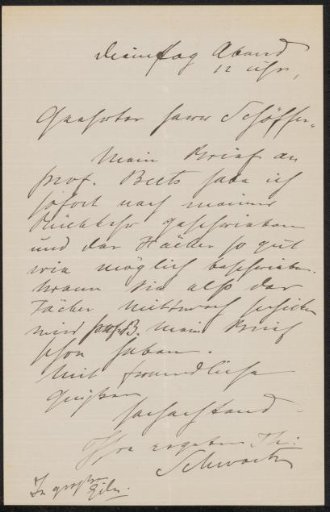 Dienstag Abend
12 Uhr,
Geehrter Herr Schöffer,
Mein Brief an
Prof. Beets habe ich
sofort nach meiner
Rückkehr geschrieben
und der Fächer so gut
wie möglich beschrieben.
Wenn Sie also der
Fächer Mittwoch schicken
wird Prof. B. mein Brief
schon haben.
Mit freundlichen
Grüßen
hochachtend
Ihre ergeben Th:
Schwartz
In großer
Eile.